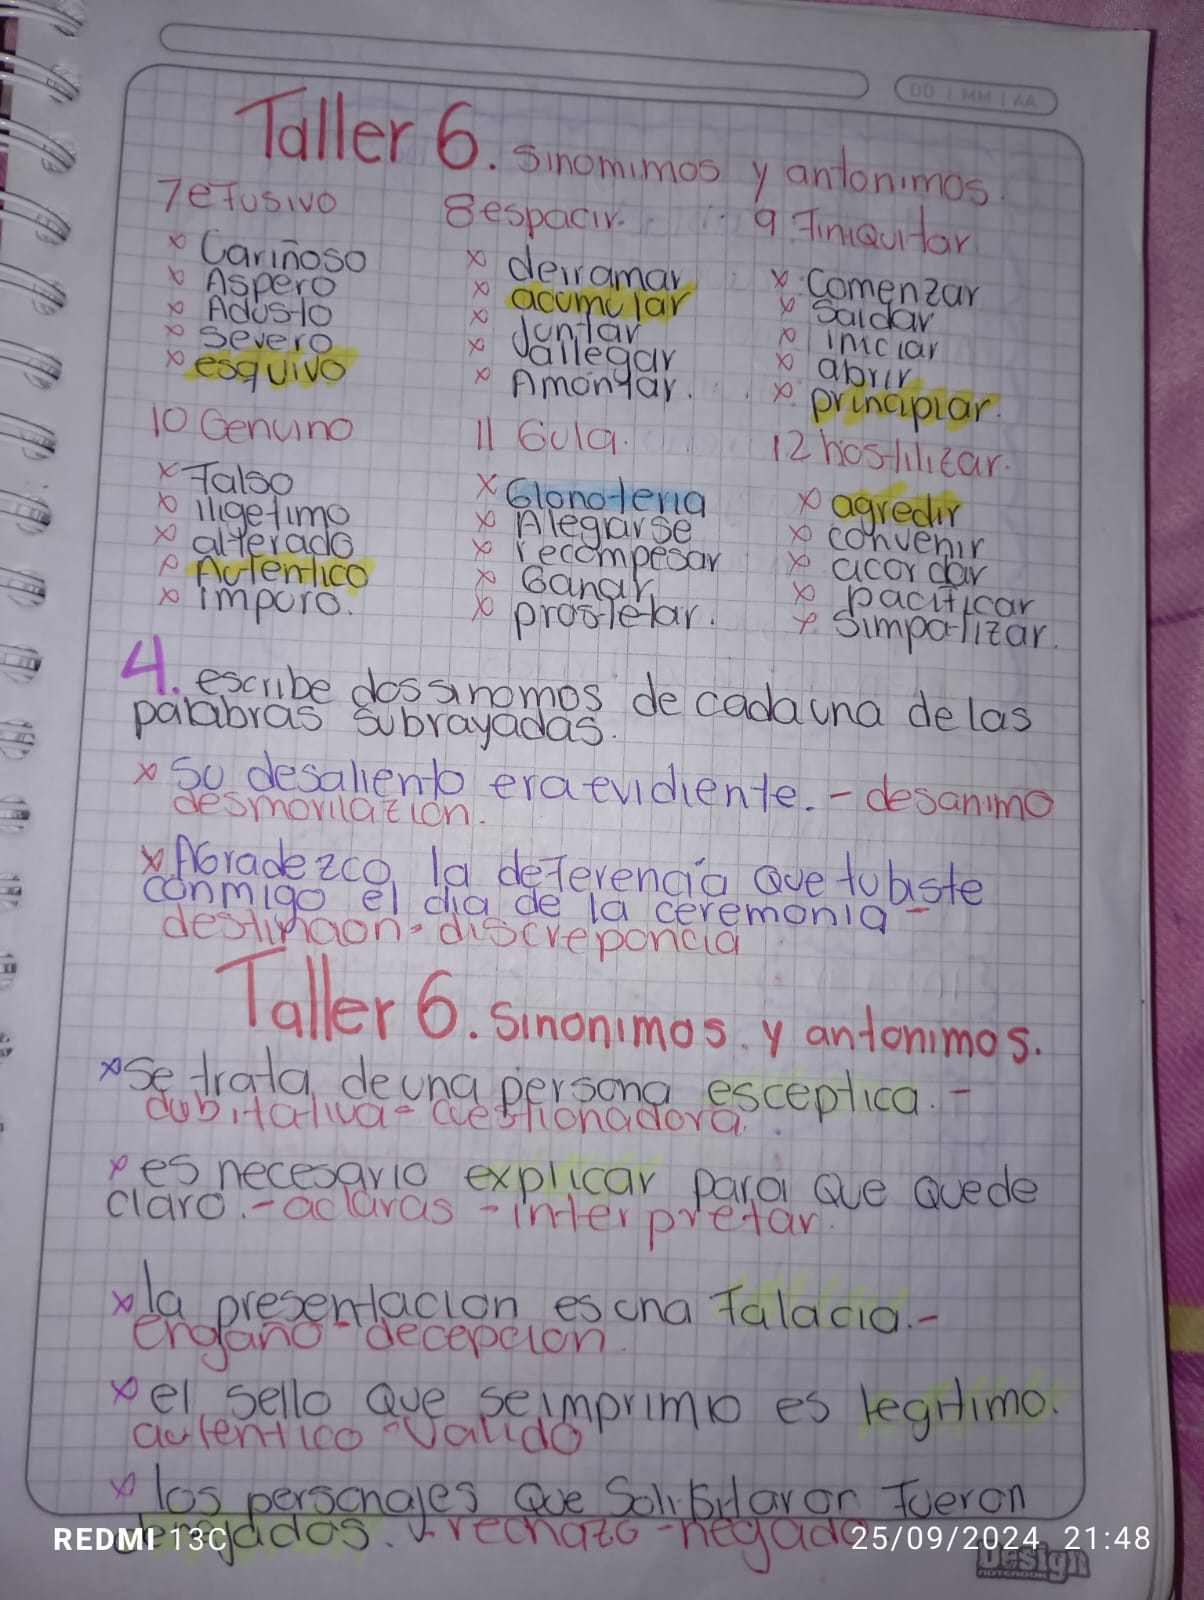 DD | MM | AA
Taller 6. sinomimos y antonimos.
7 efusivo 8 espacir. 9 finiquitar.
x Cariñoso x derramar x Comenzar
x Aspero x acumular x saldar
x Adusto x Juntar x iniciar
x severo x allegar x abrir
x esquivo x Amontar. x principiar.
10 Genuino 11 Gula. 12 hostilizar.
x falso x Glonoteria x agredir
x iligetimo x Alegarse x convenir
x alterado x recompesar x acordar
x Autentico x Ganar x pacificar
x impuro. x prostetar. x Simpatizar.
4. escribe dos sinomos de cada una de las
palabras subrayadas.
x Su desaliento era evidiente. - desanimo
desmorilazion.
x AGradezco la deferencia que tubiste
conmigo el dia de la ceremonia -
discreponcia
Taller 6. Sinonimos y antonimos.
x Se trata de una persona esceptica. -
dubitativa - cuestionadora.
x es necesario explicar para que quede
claro. - aclaras - interpretar.
x la presentacion es una falacia. -
engaño - decepcion
x el sello que se imprimio es legitimo.
autentico - valido
x los personajes que fueron
rechazo - negado
REDMI 13C 25/09/2024 21:48
Design
NOTEBOOK